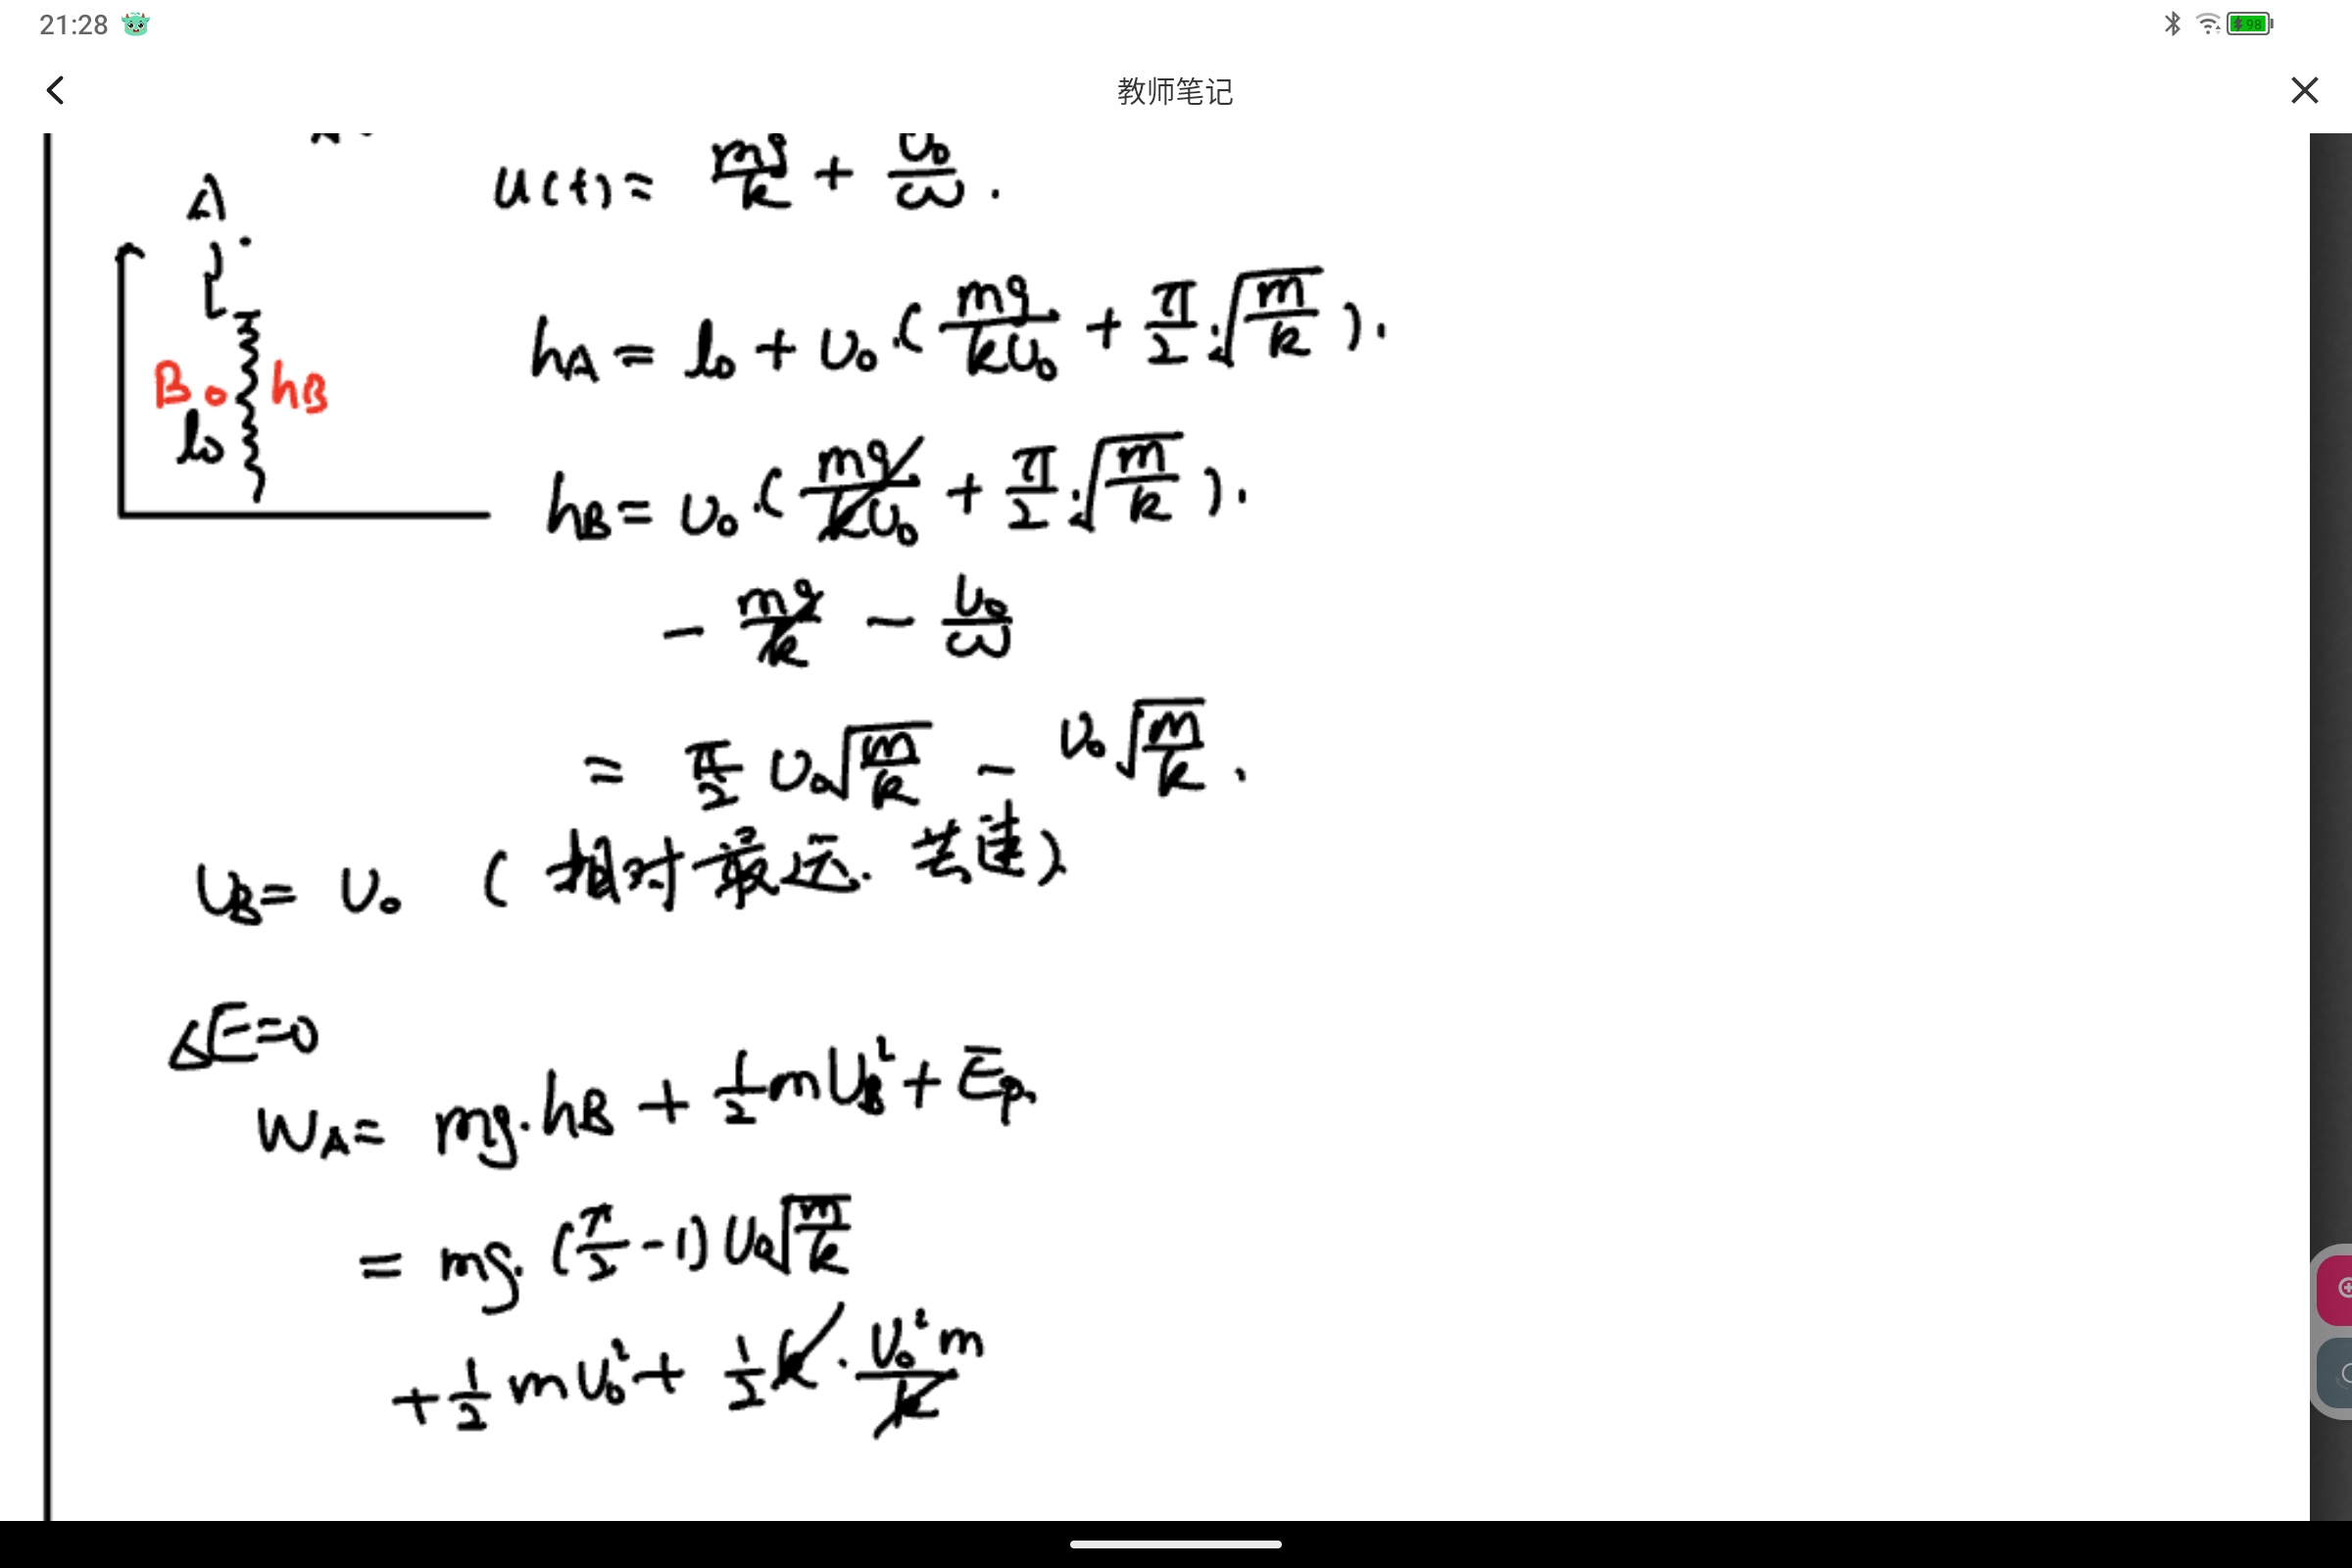 21:28
98
教师笔记
A
u(t) = mg/k + v₀/ω .
l₀
B
h_B
h_A = l₀ + v₀·( mg/(kv₀) + π/2·√(m/k) ).
h_B = v₀·( mg/(kv₀) + π/2·√(m/k) ).
- mg/k - v₀/ω
= π/2 v₀√(m/k) - v₀√(m/k) .
v_B = v₀ ( 相对最远. 共速)
ΔE=0
W_A = mg·h_B + 1/2 mv_B² + E_p
= mg·(π/2 -1) v₀√(m/k)
+ 1/2 mv₀² + 1/2 k · v₀²m/k